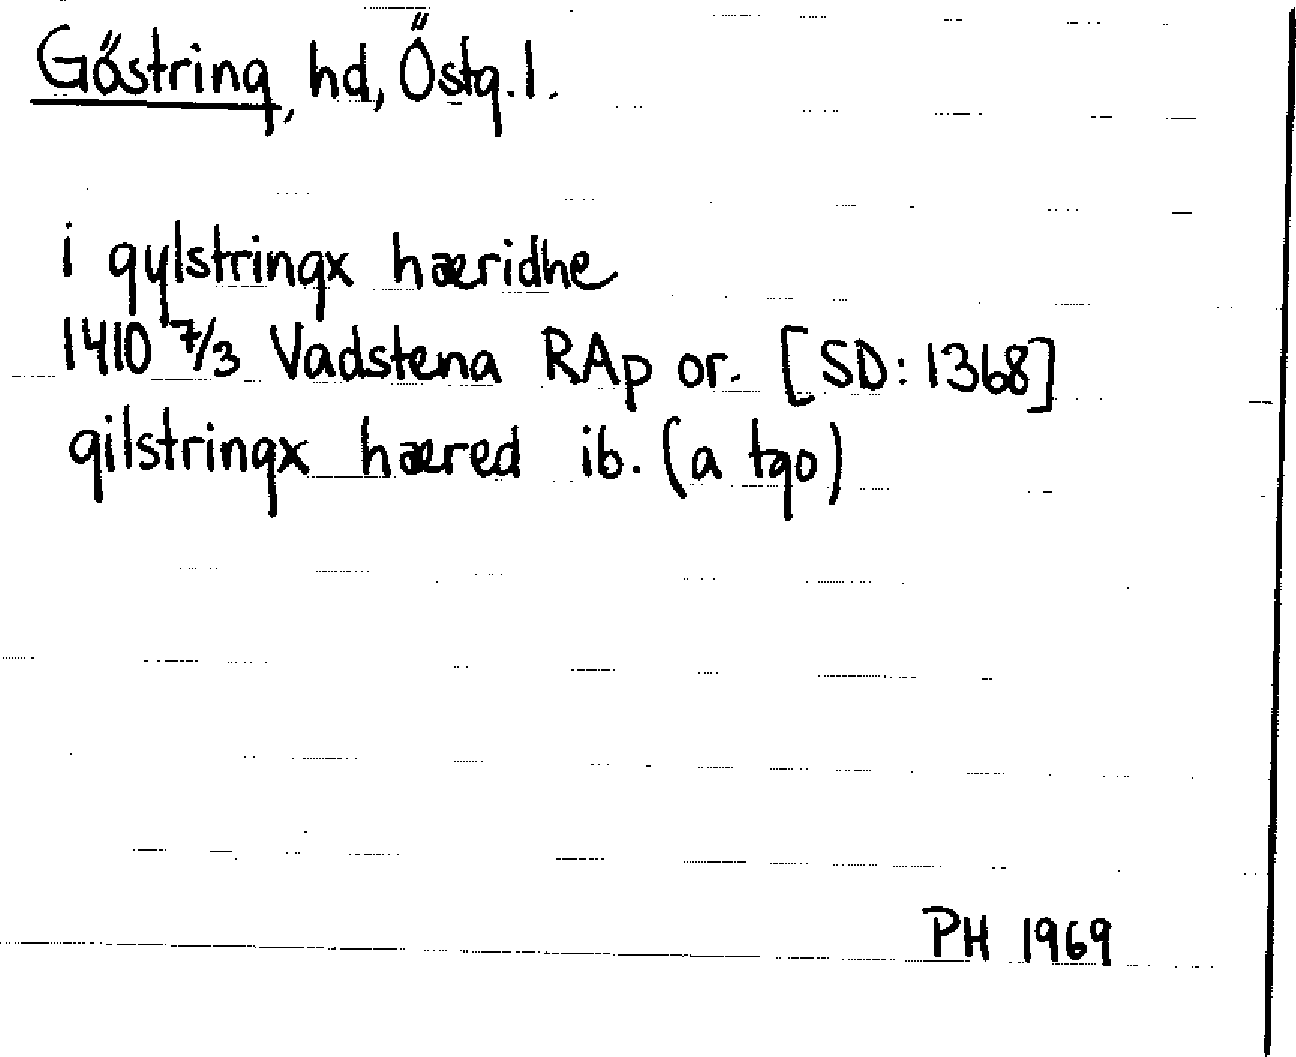 Göstring, hd, Östg. l.
i gylstringx hæridhe
1410 7/3 Vadstena RAp or. [SD: 1368]
gilstringx hæred ib. (a tgo)
PH 1969